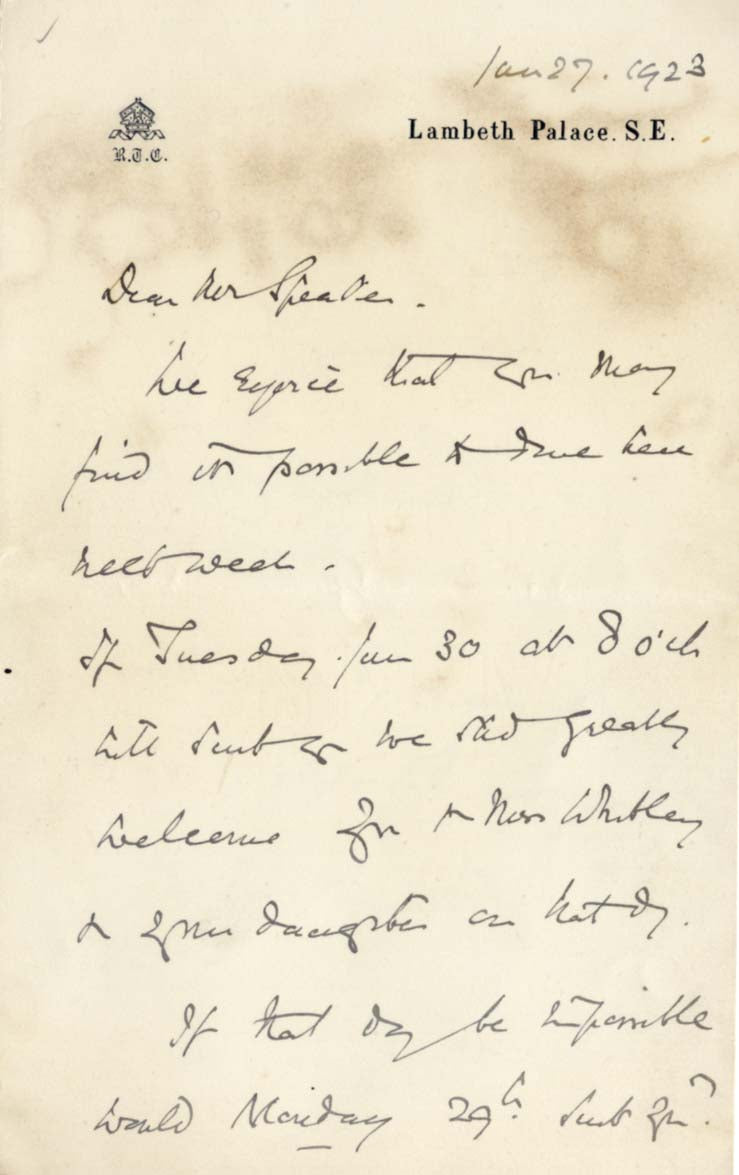 Jan 27. 1923
R.T.C.
Lambeth Palace. S.E.
Dear Mr Speaker.
We rejoice that you may
find it possible to dine here
next week.
If Tuesday Jan 30 at 8 o'ck
will suit you we shd greatly
welcome you & Mrs Whitley
& your daughter on that dy.
If that day be impossible
would Monday 29th. suit you?